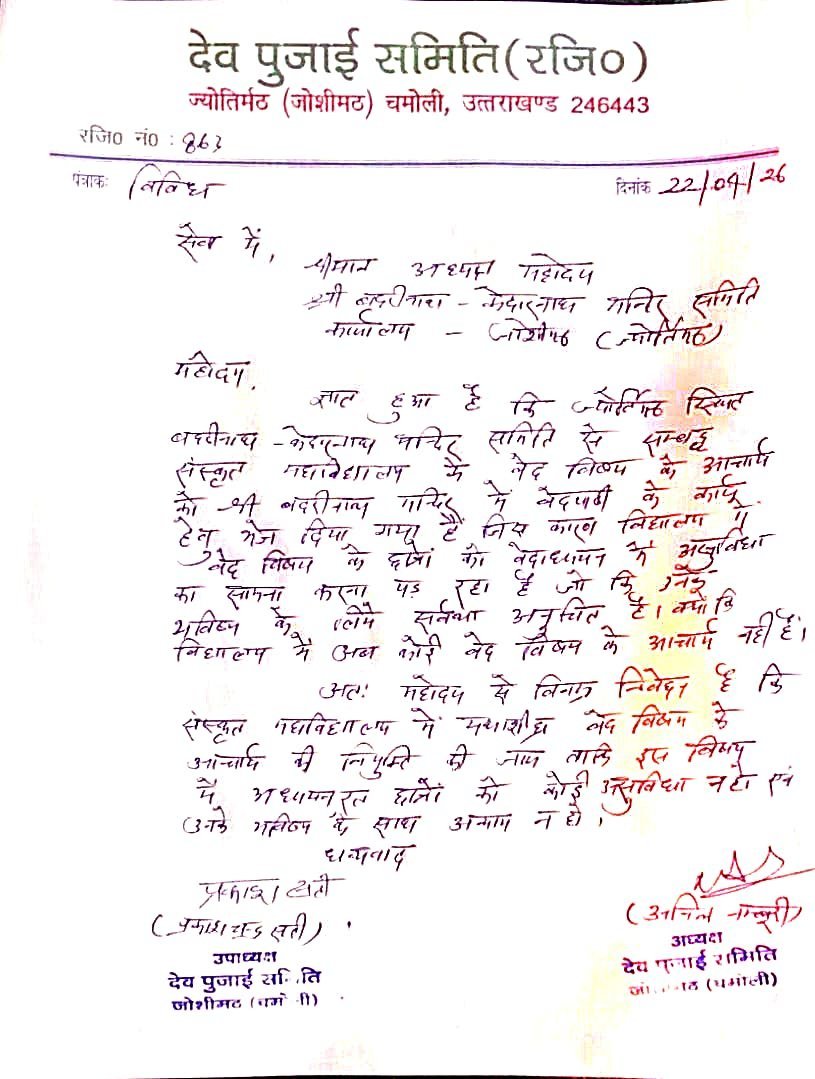 देव पुजाई समिति(रजि०)
ज्योतिर्मठ (जोशीमठ) चमोली, उत्तराखण्ड 246443
रजि० नं० : 863
पंत्राकः विविध
दिनांक 22/04/26
सेवा में,
श्रीमान अध्यक्ष महोदय
श्री बदरीनाथ - केदारनाथ मन्दिर समिति
कार्यालय - जोशीमठ (ज्योर्तिमठ)
महोदय,
ज्ञात हुआ है कि ज्योर्तिमठ स्थित
बदरीनाथ - केदारनाथ मन्दिर समिति से सम्बद्ध
संस्कृत महाविद्यालय के वेद विषय के आचार्य
को श्री बदरीनाथ मन्दिर में वेदपाठी के कार्य
हेतु भेज दिया गया है जिस कारण विद्यालय में
वेद विषय के छात्रों को वेदाध्ययन में असुविधा
का सामना करना पड़ रहा है जो कि उनके
भविष्य के लिये सर्वथा अनुचित है। क्यों कि
विद्यालय में अब कोई वेद विषय के आचार्य नहीं है।
अतः महोदय से विनम्र निवेदन है कि
संस्कृत महाविद्यालय में यथाशीघ्र वेद विषय के
आचार्य की नियुक्ति की जाय ताकि इस विषय
में अध्ययनरत छात्रों को कोई असुविधा न हो एवं
उनके भविष्य के साथ अन्याय न हो।
धन्यवाद
प्रकाश सती
(प्रकाश चन्द्र सती)
उपाध्यक्ष
देव पुजाई समिति
जोशीमठ (चमोली)
(अनिल नम्बूरी)
अध्यक्ष
देव पुजाई समिति
जोशीमठ (चमोली)